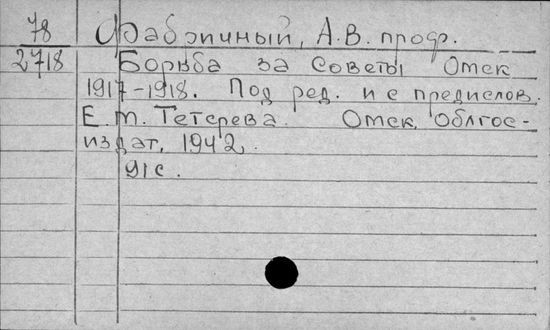 78 Фабричный, А.В. проф.
2718 Борьба за Советы Омск
1917-1918. Под ред. и с предислов.
Е.М. Тетерева. Омск, Облгос-
издат, 1942.
91с.